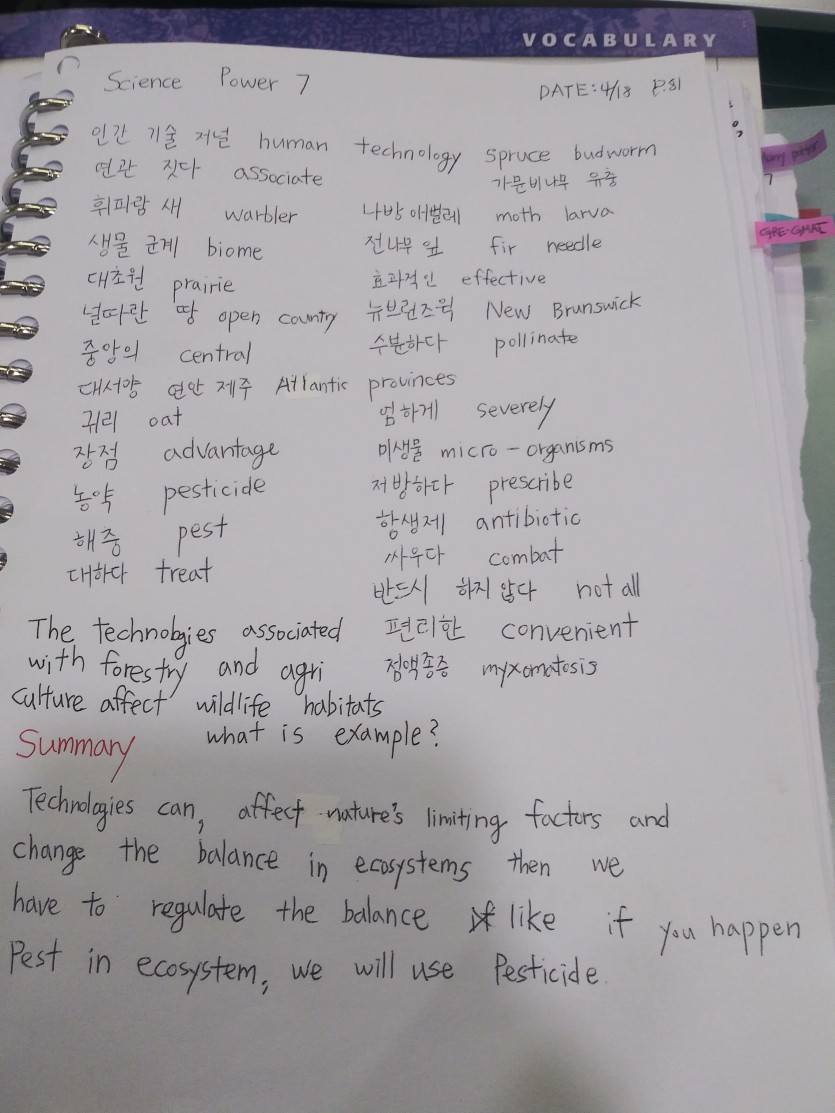 VOCABULARY
Science Power 7
DATE: 4/18 P.81
인간 기술 저널 human technology spruce budworm
연관 짓다 associate 가문비나무 유충
휘파람 새 warbler 나방 애벌레 moth larva
생물 군계 biome 전나무 잎 fir needle
대초원 prairie 효과적인 effective
널따란 땅 open country 뉴브런즈윅 New Brunswick
중앙의 central 수분하다 pollinate
대서양 연안 제주 Atlantic provinces
귀리 oat 엄하게 severely
장점 advantage 미생물 micro-organisms
농약 pesticide 처방하다 prescribe
해충 pest 항생제 antibiotic
대하다 treat 싸우다 combat
반드시 하지 않다 not all
The technologies associated 편리한 convenient
with forestry and agri 점액종증 myxomatosis
culture affect wildlife habitats
what is example?
Summary
Technologies can, affect nature's limiting factors and
change the balance in ecosystems then we
have to regulate the balance like if you happen
Pest in ecosystem, we will use Pesticide.
7
GRE-GMAT